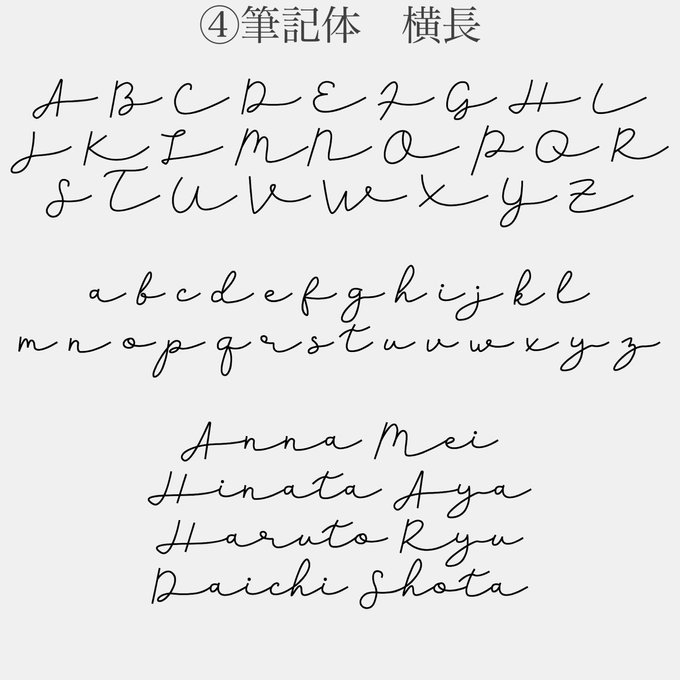 ④筆記体　横長
A B C D E F G H I
J K L M N O P Q R
S T U V W X Y Z
a b c d e f g h i j k l
m n o p q r s t u v w x y z
Anna Mei
Hinata Aya
Haruto Ryu
Daichi Shota